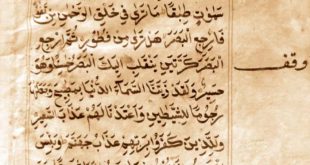 سموت طباقا ما تري في خلق الرحمن من تفوت
فارجع البصر هل تري من فطور ثم ارجع
البصر كرتين ينقلب اليك البصر خاسئا وهو
وقف
حسير ولقد زينا السماء الدنيا بمصبيح وجعلنها
رجوما للشيطين واعتدنا لهم عذاب السعير
وللذين كفروا بربهم عذاب جهنم وبيس